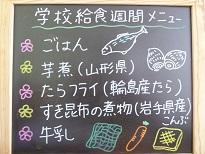 学校給食週間メニュー
ごはん
芋煮(山形県)
たらフライ(輪島産たら)
すき昆布の煮物(岩手県産こんぶ)
牛乳